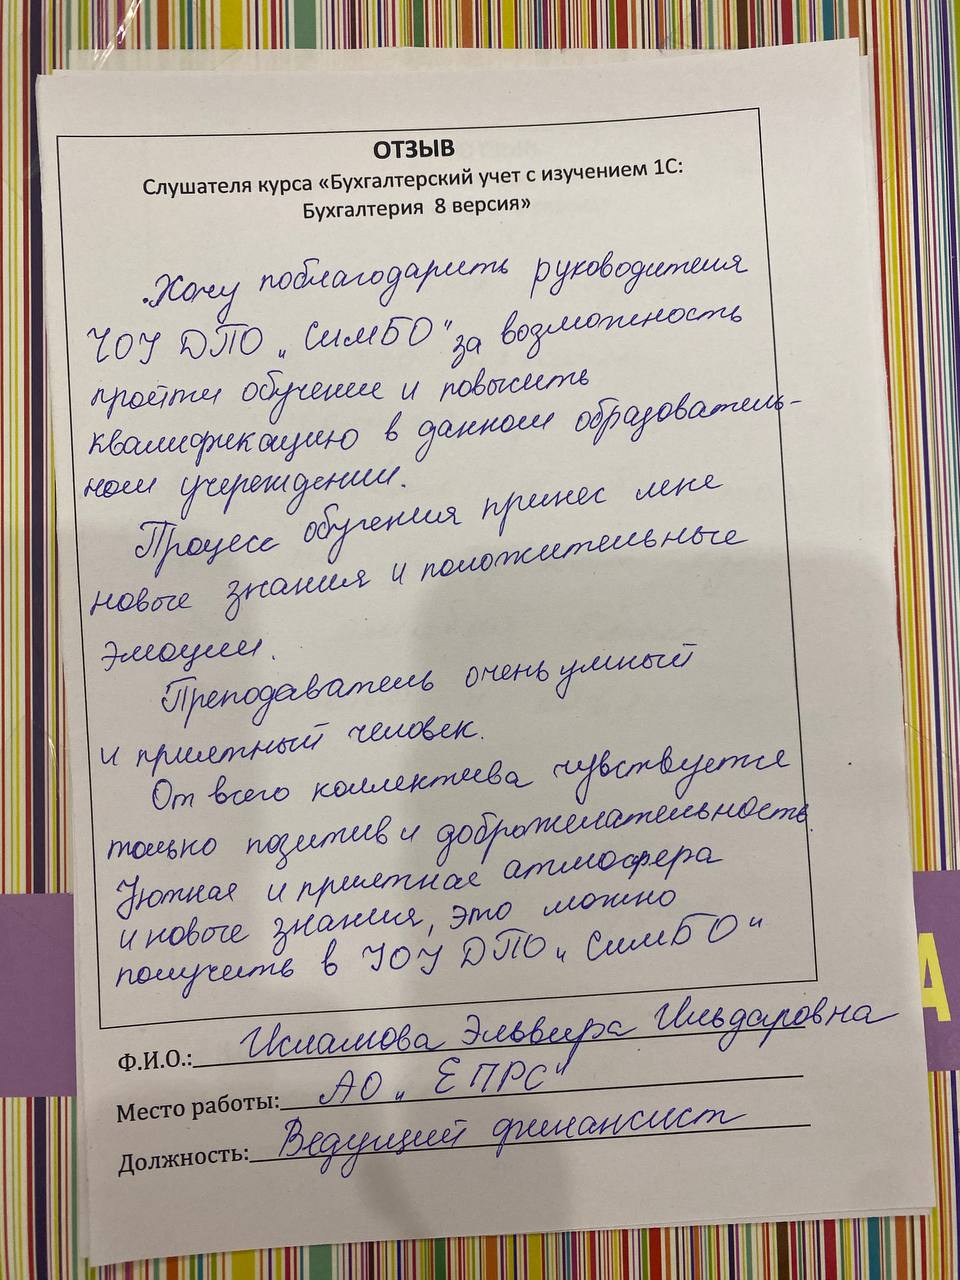 ОТЗЫВ
Слушателя курса «Бухгалтерский учет с изучением 1С:
Бухгалтерия 8 версия»
Хочу поблагодарить руководителя
ЧОУ ДПО „СимБО" за возможность
пройти обучение и повысить
квалификацию в данном образователь-
ном учреждении.
Процесс обучения принес мне
новые знания и положительные
эмоции.
Преподаватель очень умный
и приятный человек.
От всего коллектива чувствуется
только позитив и доброжелательность.
Уютная и приятная атмосфера
и новые знания, это можно
получить в ЧОУ ДПО „СимБО"
А
Ф.И.О.: Исламова Эльвира Ильдаровна
Место работы: АО „ЕПРС"
Должность: Ведущий финансист